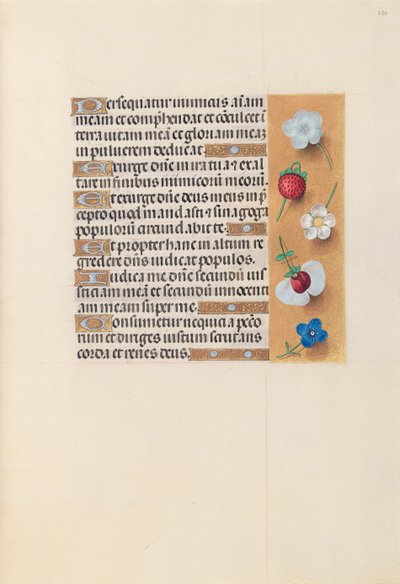 Persequatur inimicus aīam
meam et comp̄hendat et cōculcet ī
terra vitam meā et gloriam meaʒ
in pulverem deducat.
Exurge dn̄e in ira tua et exal
tare in finibus inimicorū meorū.
Et exurge dn̄e deus meus in p̄
cepto quod mandasti et sinagoga
populorū circundabit te.
Et propter hanc in altum re
gredere dn̄s iudicat populos.
Iudica me dn̄e secundū ius
ticiam meā et secundū innocenti
am meam super me.
Consumetur nequicia pecc̄o
rum et diriges iustum scrutans
corda et renes deus.